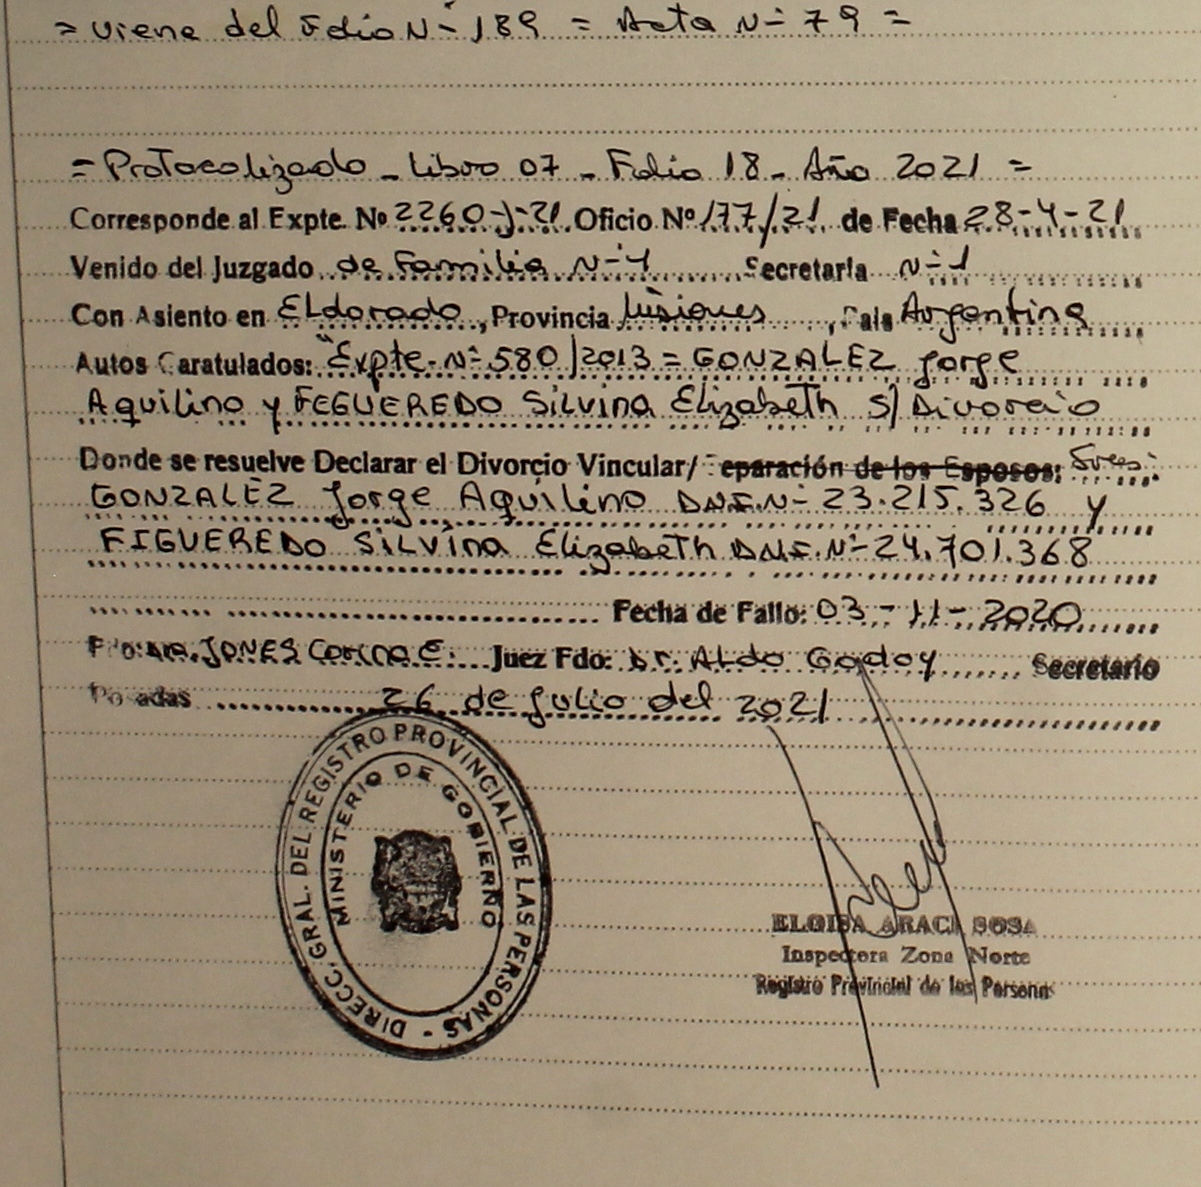 = Viene del Folio N- 189 = Acta N- 79 =
= Protocolizado - Libro 07 - Folio 18 - Año 2021 =
Corresponde al Expte. Nº 2260-J-21 Oficio Nº 177/21 de Fecha 28-4-21
Venido del Juzgado de Familia N-1 Secretaria N-1
Con Asiento en Eldorado, Provincia Misiones, Pais Argentina
Autos Caratulados: "Expte-Nº 580/2013 = GONZALEZ Jorge
Aquilino y FEGUEREDO Silvina Elizabeth S/ Divorcio
Donde se resuelve Declarar el Divorcio Vincular/ Separación de los Esposos: Sres:
GONZALEZ Jorge Aquilino D.N.I. N- 23.215.326 y
FIGUEREDO Silvina Elizabeth D.N.I. Nº- 24.701.368
Fecha de Fallo: 03-11-2020
JONES Corina E. Juez Fdo: Dr. Aldo Godoy Secretario
Posadas 26 de Julio del 2021
DIRECC. GRAL. DEL REGISTRO PROVINCIAL DE LAS PERSONAS -
MINISTERIO DE GOBIERNO
ELOISA ARACI SOSA
Inspectora Zona Norte
Registro Provincial de las Personas